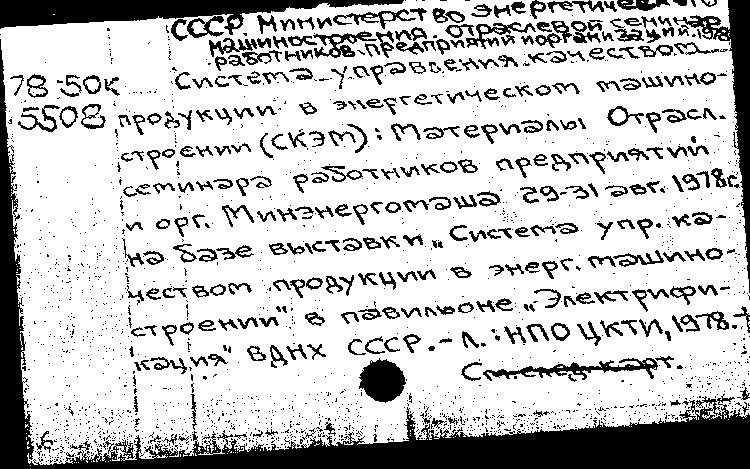 СССР Министерство энергетического
машиностроения. Отраслевой семинар
работников предприятий и организаций. 1978
78-50к Система управления качеством
5508 продукции в энергетическом машино-
строении (СКЭМ): Материалы Отрасл.
семинара работников предприятий
и орг. Минэнергомаша 29-31 авг. 1978г.
на базе выставки „Система упр. ка-
чеством продукции в энерг. машино-
строении" в павильоне „Электрифи-
кация" ВДНХ СССР. - Л.: НПО ЦКТИ, 1978.-
См. след. карт.
6